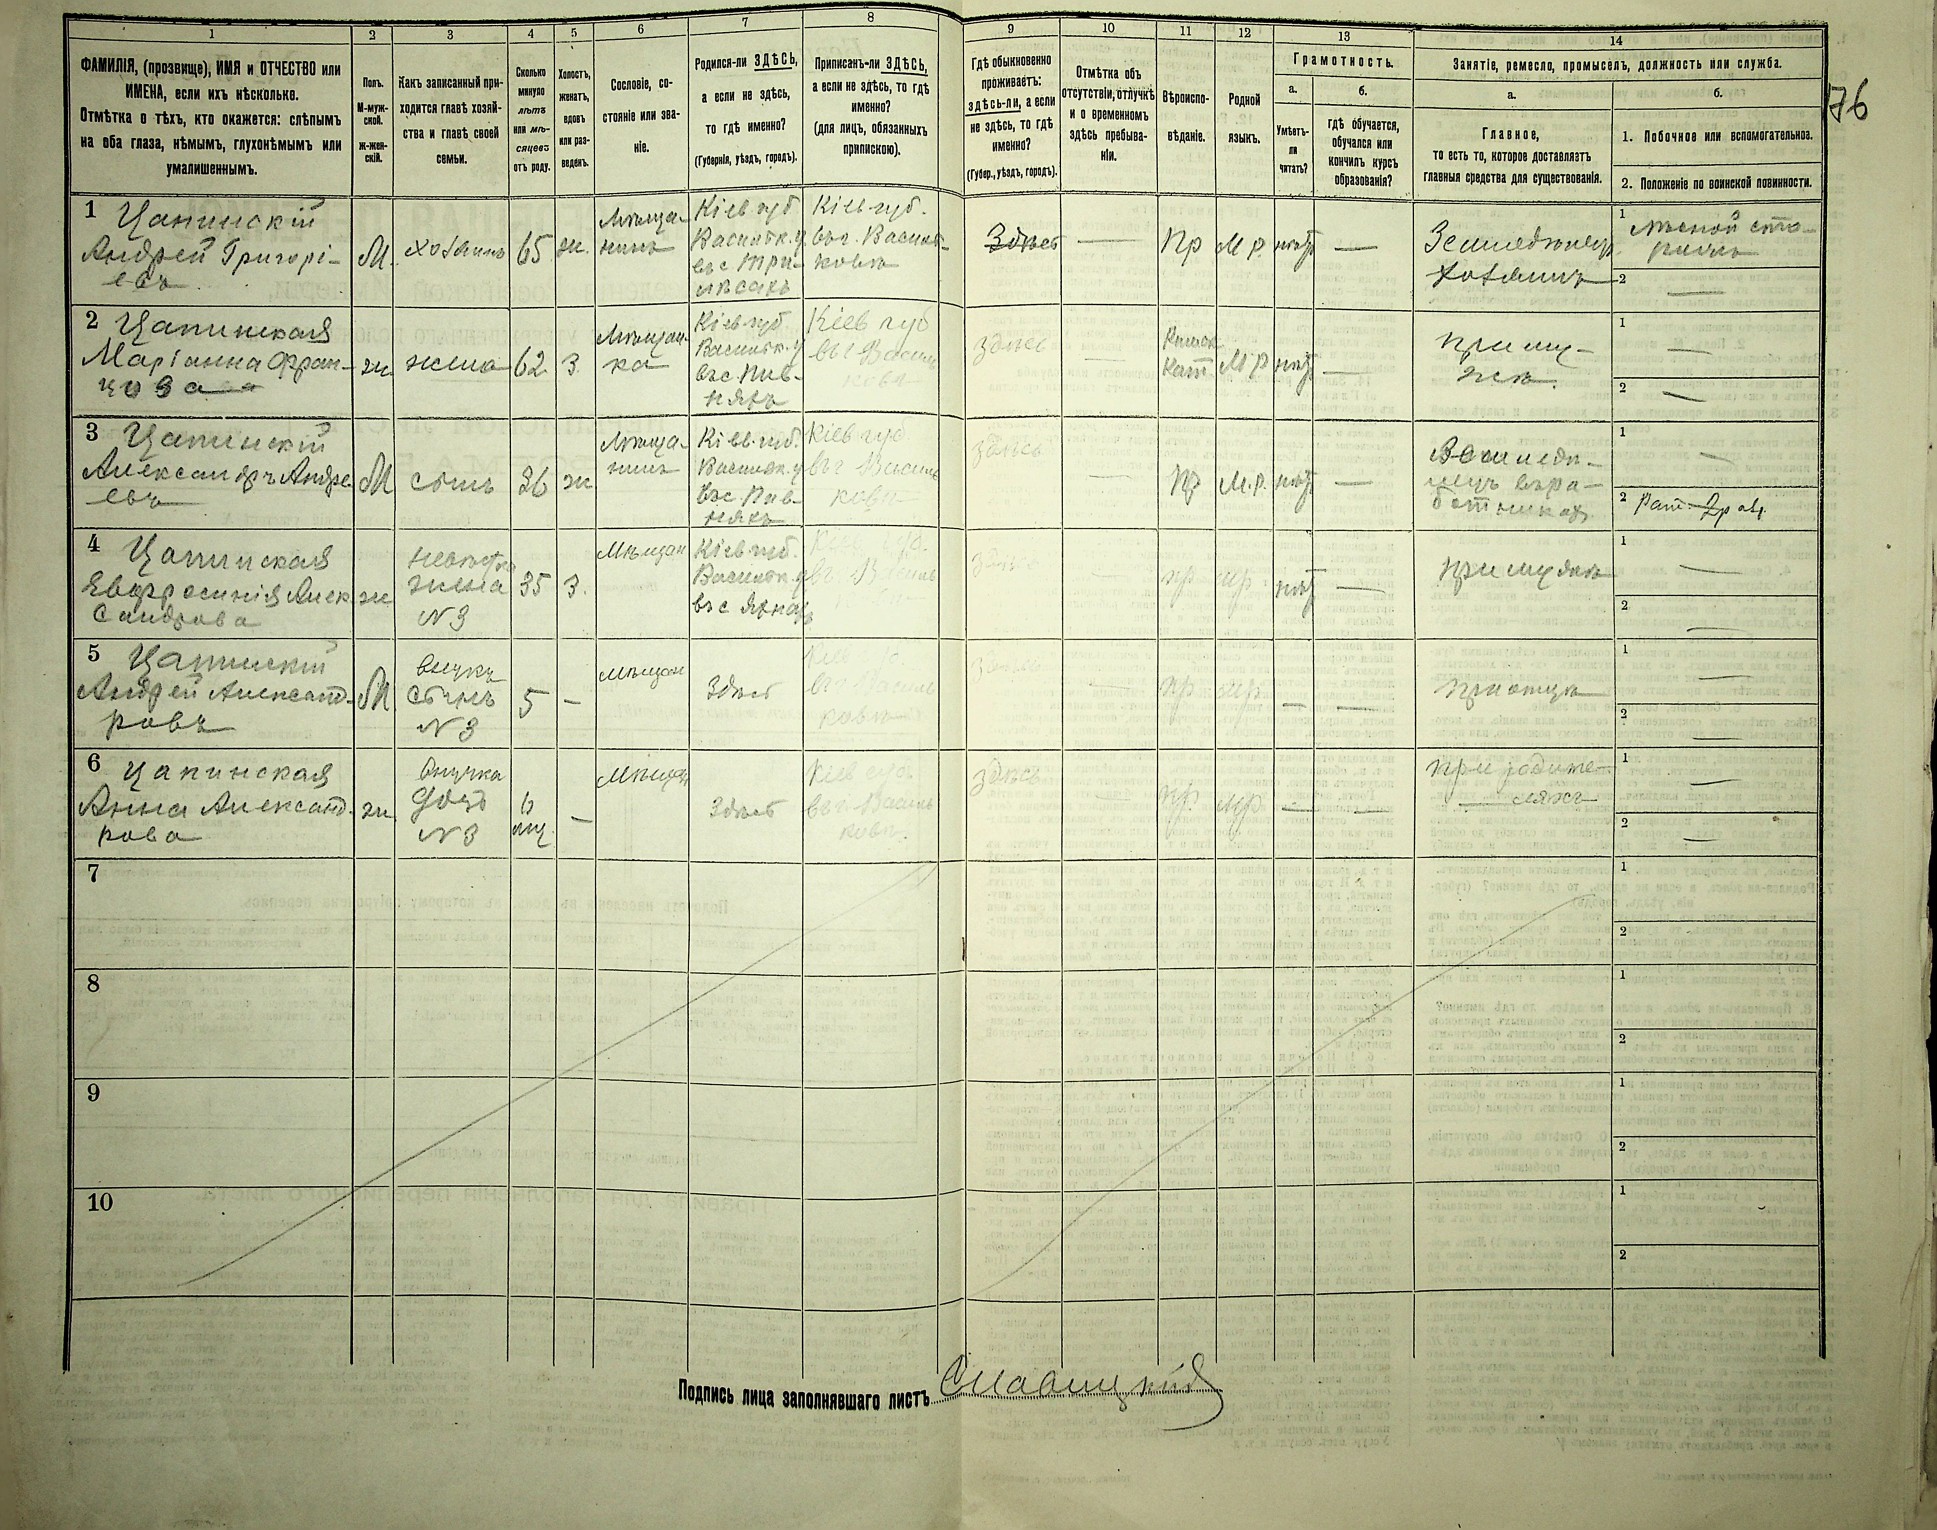 1 2 3 4 5 6 7 8 9 10 11 12 13 14
ФАМИЛІЯ, (прозвище), ИМЯ и ОТЧЕСТВО или
ИМЕНА, если ихъ нѣсколько.
Отмѣтка о тѣхъ, кто окажется: слѣпымъ
на оба глаза, нѣмымъ, глухонѣмымъ или
умалишеннымъ.
Полъ.
М-муж-
ской.
ж-жен-
скій.
Какъ записанный при-
ходится главѣ хозяй-
ства и главѣ своей
семьи.
Сколько
минуло
лѣтъ
или мѣ-
сяцевъ
отъ роду.
Холостъ,
женатъ,
вдовъ
или раз-
веденъ.
Сословіе, со-
стояніе или зва-
ніе.
Родился-ли ЗДѢСЬ,
а если не здѣсь,
то гдѣ именно?
(Губернія, уѣздъ, городъ).
Приписанъ-ли ЗДѢСЬ,
а если не здѣсь, то гдѣ
именно?
(для лицъ, обязанныхъ
припискою).
Гдѣ обыкновенно
проживаетъ:
здѣсь-ли, а если
не здѣсь, то гдѣ
именно?
(Губер., уѣздъ, городъ).
Отмѣтка объ
отсутствіи, отлучкѣ
и о временномъ
здѣсь пребыва-
ніи.
Вѣроиспо-
вѣданіе.
Родной
языкъ.
Грамотность.
а.
Умѣетъ-
ли
читать?
б.
гдѣ обучается,
обучался или
кончилъ курсъ
образованія?
Занятіе, ремесло, промыселъ, должность или служба.
а.
Главное,
то есть то, которое доставляетъ
главныя средства для существованія.
б.
1. Побочное или вспомогательное.
2. Положеніе по воинской повинности.
176
1 Цапинскій
Андрей Григорі-
евъ
М.
хозяинъ
65
ж.
Мѣща-
нинъ
Кіев губ
Васильк. у
въ с Три-
лѣсахъ
Кіев губ.
въ г. Василь-
ковѣ
Здѣсь
—
Пр
М. р.
нѣтъ
—
Земледѣлецъ
хозяинъ
1 лѣсной сто-
рожъ
2 —
2 Цапинская
Маріанна Фран-
цова
ж
жена
62
З
Мѣщан-
ка
Кіев губ.
Васильк. у
въ с. Пив-
няхъ
Кіев губ
въ г Василь
ковѣ
здѣсь
—
Кат.
М. р
нѣтъ
—
при му-
жѣ.
1
2 —
3 Цапинскій
Александръ Андре
евъ
М
сынъ
36
ж
Мѣща-
нинъ
Кіев. губ.
Васильк. у
въ с. Пив-
няхъ
Кіев губ
въ г Василь
ковѣ
здѣсь
—
пр
М. р.
нѣтъ
—
Земледѣ-
лецъ въ ра-
ботникахъ
1 —
2
4 Цапинская
Евфросинія Алек
сандрова
ж
невѣстка
жена
N 3
35
З.
Мѣщан
Кіев губ.
Васильк. у
въ с
въ г. Василь
здѣсь
—
пр
мр
нѣтъ
—
при мужѣ
1 —
2 —
5 Цапинскій
Андрей Александ-
ровъ
М
внукъ
сынъ
N 3
5
—
Мѣщан
Здѣсь
въ г Василь
ковѣ
здѣсь
—
пр
мр
—
—
при отцѣ
1 —
2 —
6 Цапинская
Анна Александ-
рова
ж
внучка
дочь
N 3
6
мц
—
Мѣщан
Здѣсь
Кіев губ.
въ г. Василь
ковѣ.
здѣсь
—
пр
мр
—
—
при родите-
ляхъ
1 —
2 —
7
1
2
8
1
2
9
1
2
10
1
2
Подпись лица заполнявшаго листъ